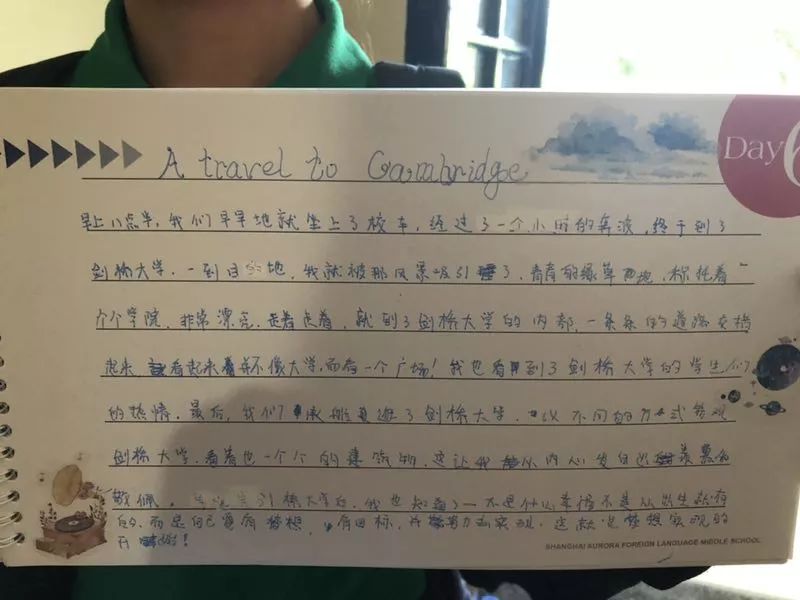 Day 6
A travel to Cambridge
早上八点半,我们早早地就坐上了校车,经过了一个小时的奔波,终于到了
剑桥大学。一到目的地,我就被那风景吸引了,青青的绿草地,衬托着一
个个学院,非常漂亮。走着走着,就到了剑桥大学的内部,一条条的道路交错
起来,看起来并不像大学,而看一个广场!我也看到了剑桥大学的学生们
的热情。最后,我们乘船游了剑桥大学,以不同的方式参观
剑桥大学。看着也一个个的建筑物,这让我从内心发自出羡慕和
敬佩。剑桥大学后,我也知道了一
的,而是自己有梦想,有目标,并努力去实现,这就是梦想实现的
开
SHANGHAI AURORA FOREIGN LANGUAGE MIDDLE SCHOOL